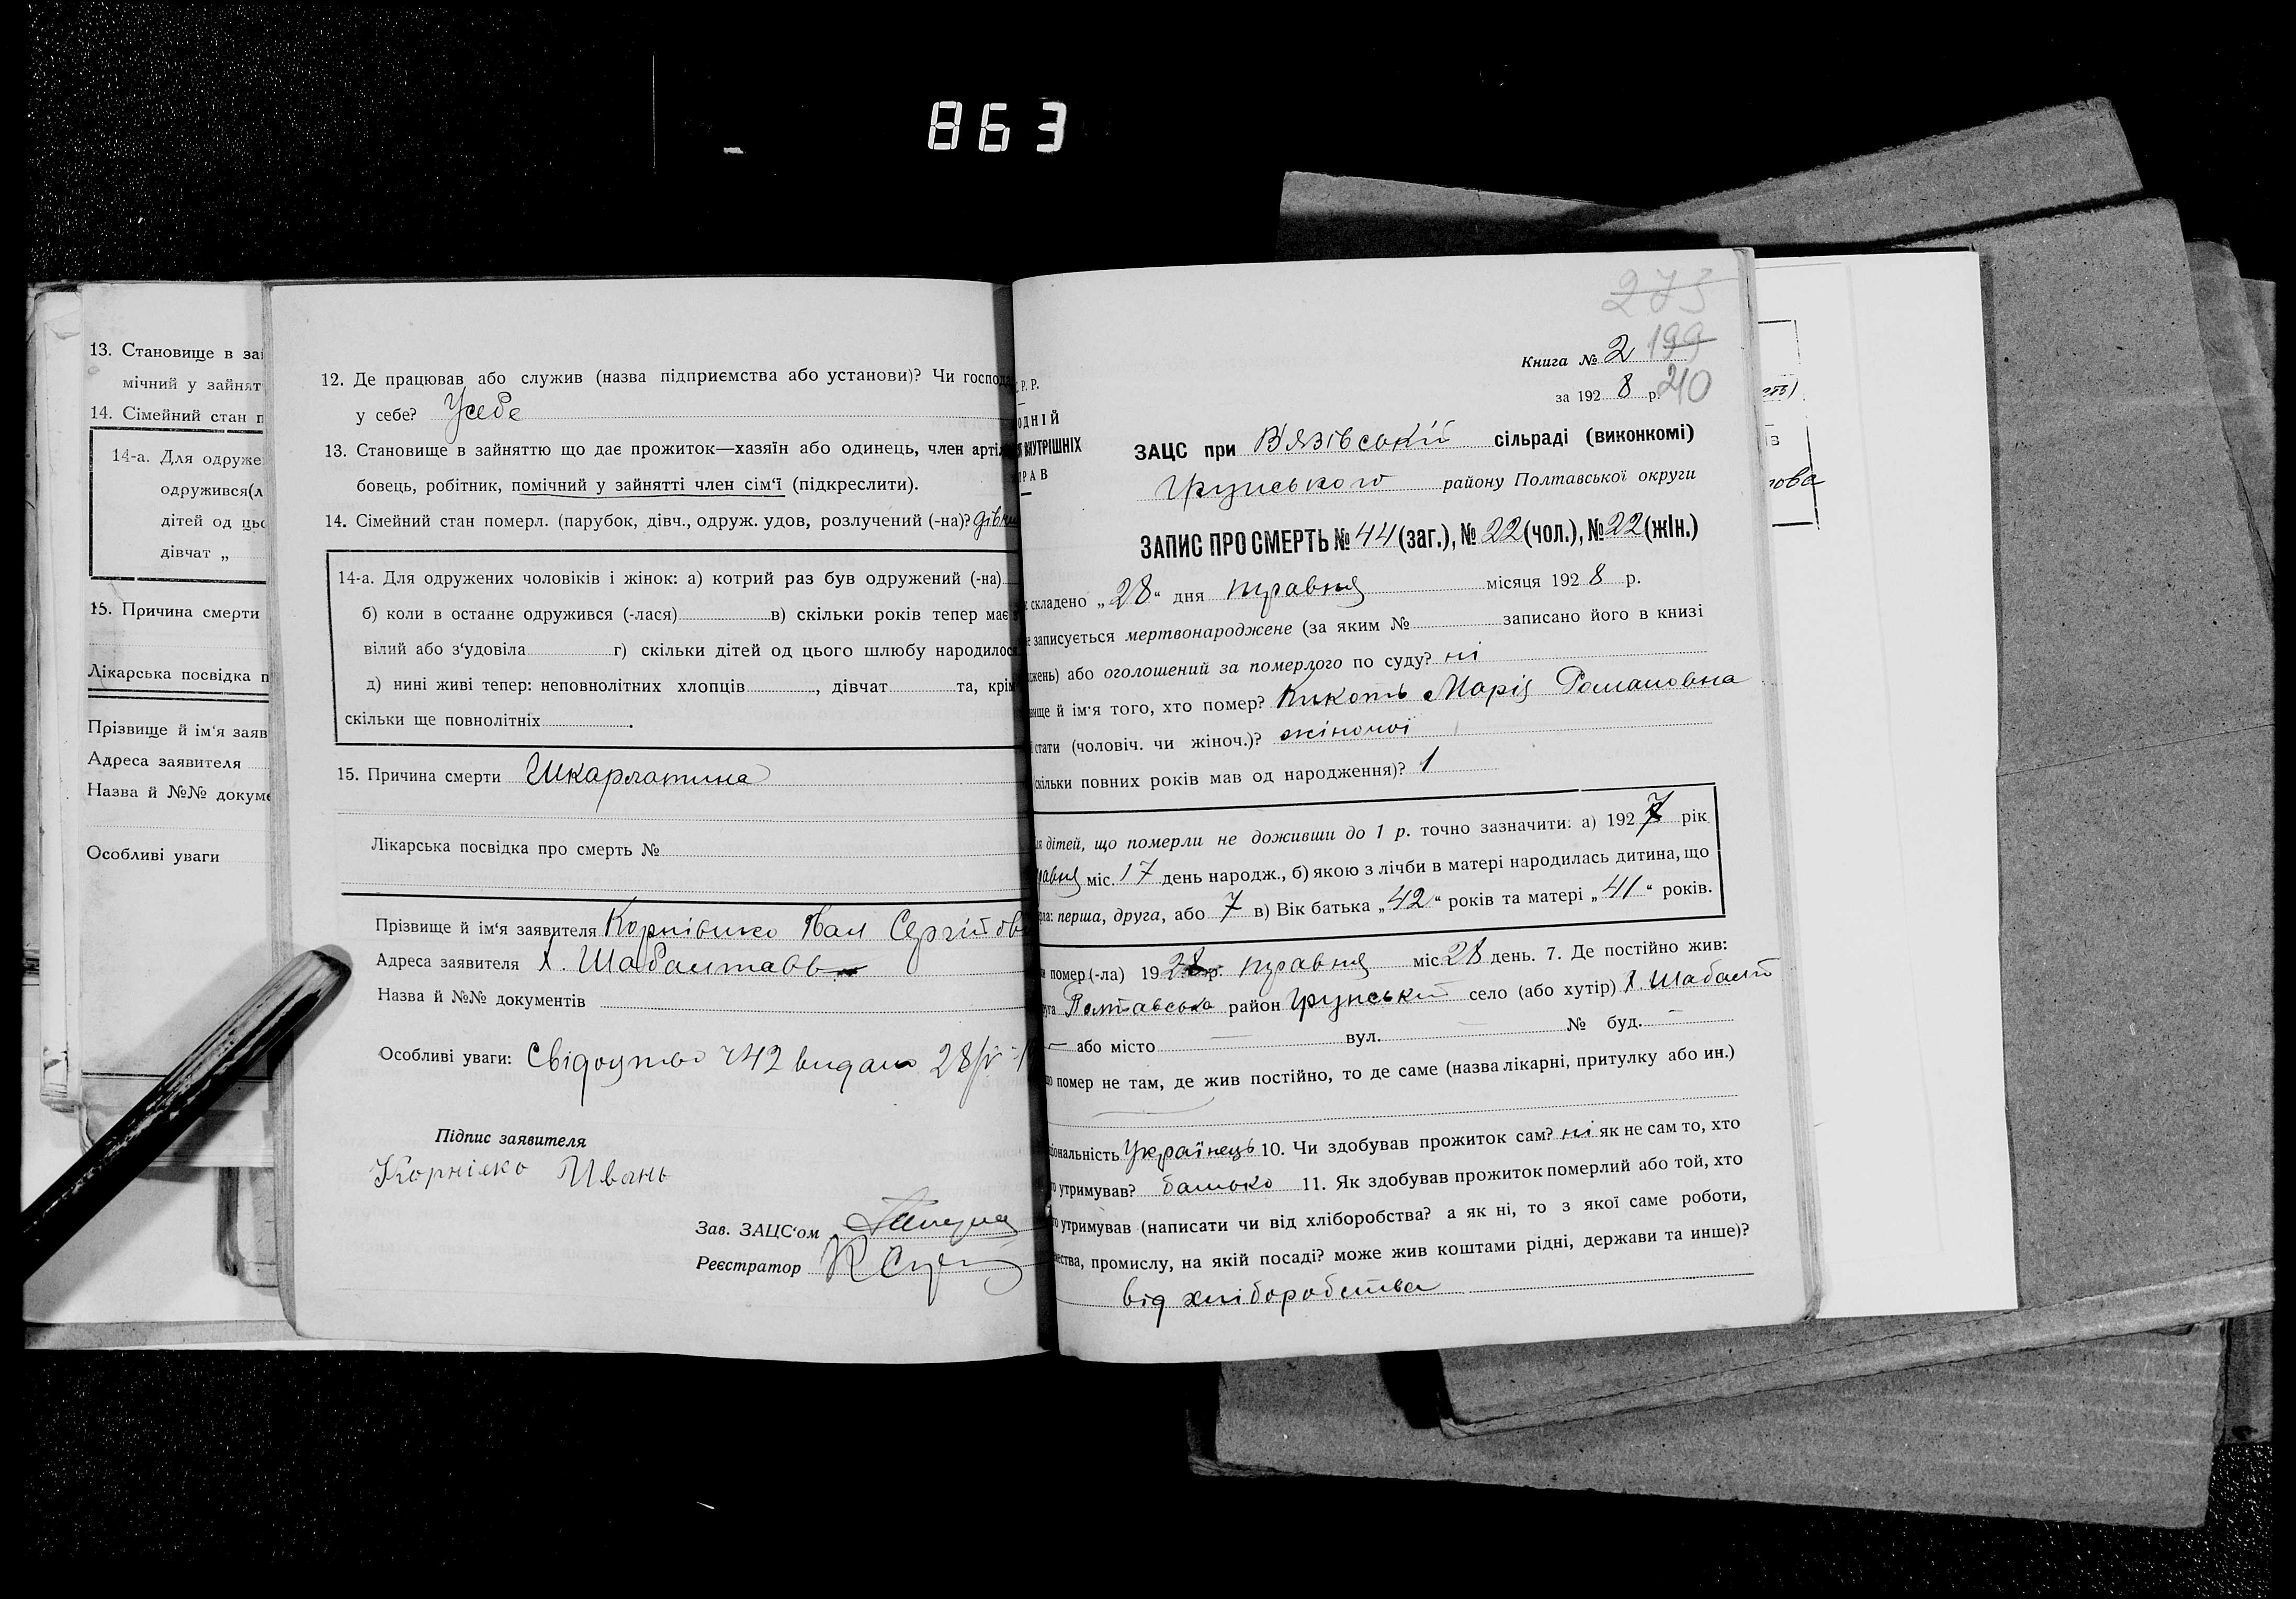 863
13. Становище в за
мічний у зайнят
14. Сімейний стан п
14-а. Для одруже
одружився(л
дітей од цьо
дівчат „
15. Причина смерти
Лікарська посвідка п
Прізвище й ім'я заяв
Адреса заявителя
Назва й №№ докуме
Особливі уваги
12. Де працював або служив (назва підприємства або установи)? Чи господа
у себе? У себе
13. Становище в зайняттю що дає прожиток—хазяїн або одинець, член артіл
бовець, робітник, помічний у зайнятті член сім'ї (підкреслити).
14. Сімейний стан померл. (парубок, дівч., одруж. удов, розлучений (-на)?
14-а. Для одружених чоловіків і жінок: а) котрий раз був одружений (-на)
б) коли в останнє одружився (-лася) в) скільки років тепер має
вілий або з'удовіла г) скільки дітей од цього шлюбу народилося
д) нині живі тепер: неповнолітних хлопців , дівчат та, крім
скільки ще повнолітніх .
15. Причина смерти Шкарлатина
Лікарська посвідка про смерть №
Прізвище й ім'я заявителя
Адреса заявителя х.
Назва й №№ документів
Особливі уваги: 42 видано 28/V
Підпис заявителя
Корнілко Ивань
Зав. ЗАЦС'ом
Реєстратор
273
Книга № 2 199
за 192 8 р. 210
Р. Р.
ОДНІЙ
ВНУТРІШНІХ
РАВ
ЗАЦС при В'язівській сільраді (виконкомі)
Грунського району Полтавської округи
ЗАПИС ПРО СМЕРТЬ № 44 (заг.), № 22 (чол.), № 22 (жін.)
складено „28" дня травня місяця 192 8 р.
записується мертвонароджене (за яким № записано його в книзі
жень) або оголошений за померлого по суду? ні
вище й ім'я того, хто помер? Кикоть Марія Романовна
стати (чоловіч. чи жіноч.)? жіночої
скільки повних років мав од народження)? 1
дітей, що померли не доживши до 1 р. точно зазначити: а) 192 7 рік
равня міс. 17 день народж., б) якою з лічби в матері народилась дитина, що
рла: перша, друга, або 7 в) Вік батька „42" років та матері „41" років.
помер.(-ла) 1928 р. травня міс. 28 день. 7. Де постійно жив:
руга Полтавська район Грунський село (або хутір) х.
— або місто — вул. — № буд. —
помер не там, де жив постійно, то де саме (назва лікарні, притулку або ин.)
ціональність Українець 10. Чи здобував прожиток сам? ні як не сам то, хто
утримував? батько 11. Як здобував прожиток померлий або той, хто
утримував (написати чи від хліборобства? а як ні, то з якої саме роботи,
ества, промислу, на якій посаді? може жив коштами рідні, держави та инше)?
від хліборобства